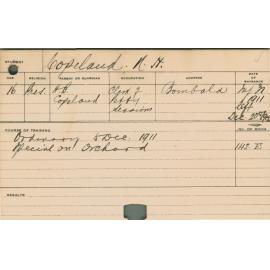 STUDENT
Copeland. N. H.
AGE RELIGION PARENT OR GUARDIAN OCCUPATION ADDRESS DATE OF ENTRANCE
16 Pres. Clerk of Bombala
Copeland Petty 1911
Sessions Left
Dec.
COURSE OF TRAINING NO. OF BOOK
Ordinary Dec. 1911 142 B
Special on Orchard
RESULTS